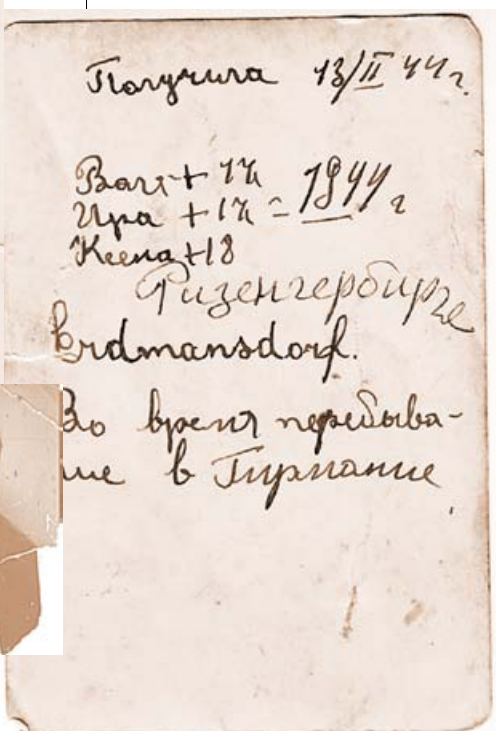 Получила 13/II 44 г.
Валя + 17
Ира + 17 = 1944 г
Ксена + 18
Ризенгербирге
Erdmansdorf.
Во время пербыва-
ние в Гирмание